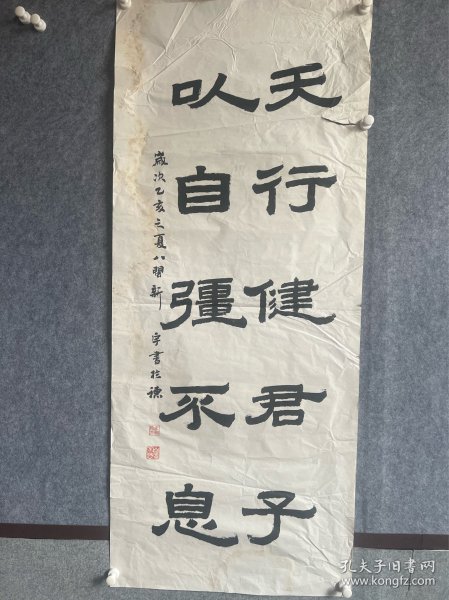 天行健君子
㕥自彊不息
歲次乙亥之夏八朙新
字書於
孔夫子旧书网
www.kongfz.com